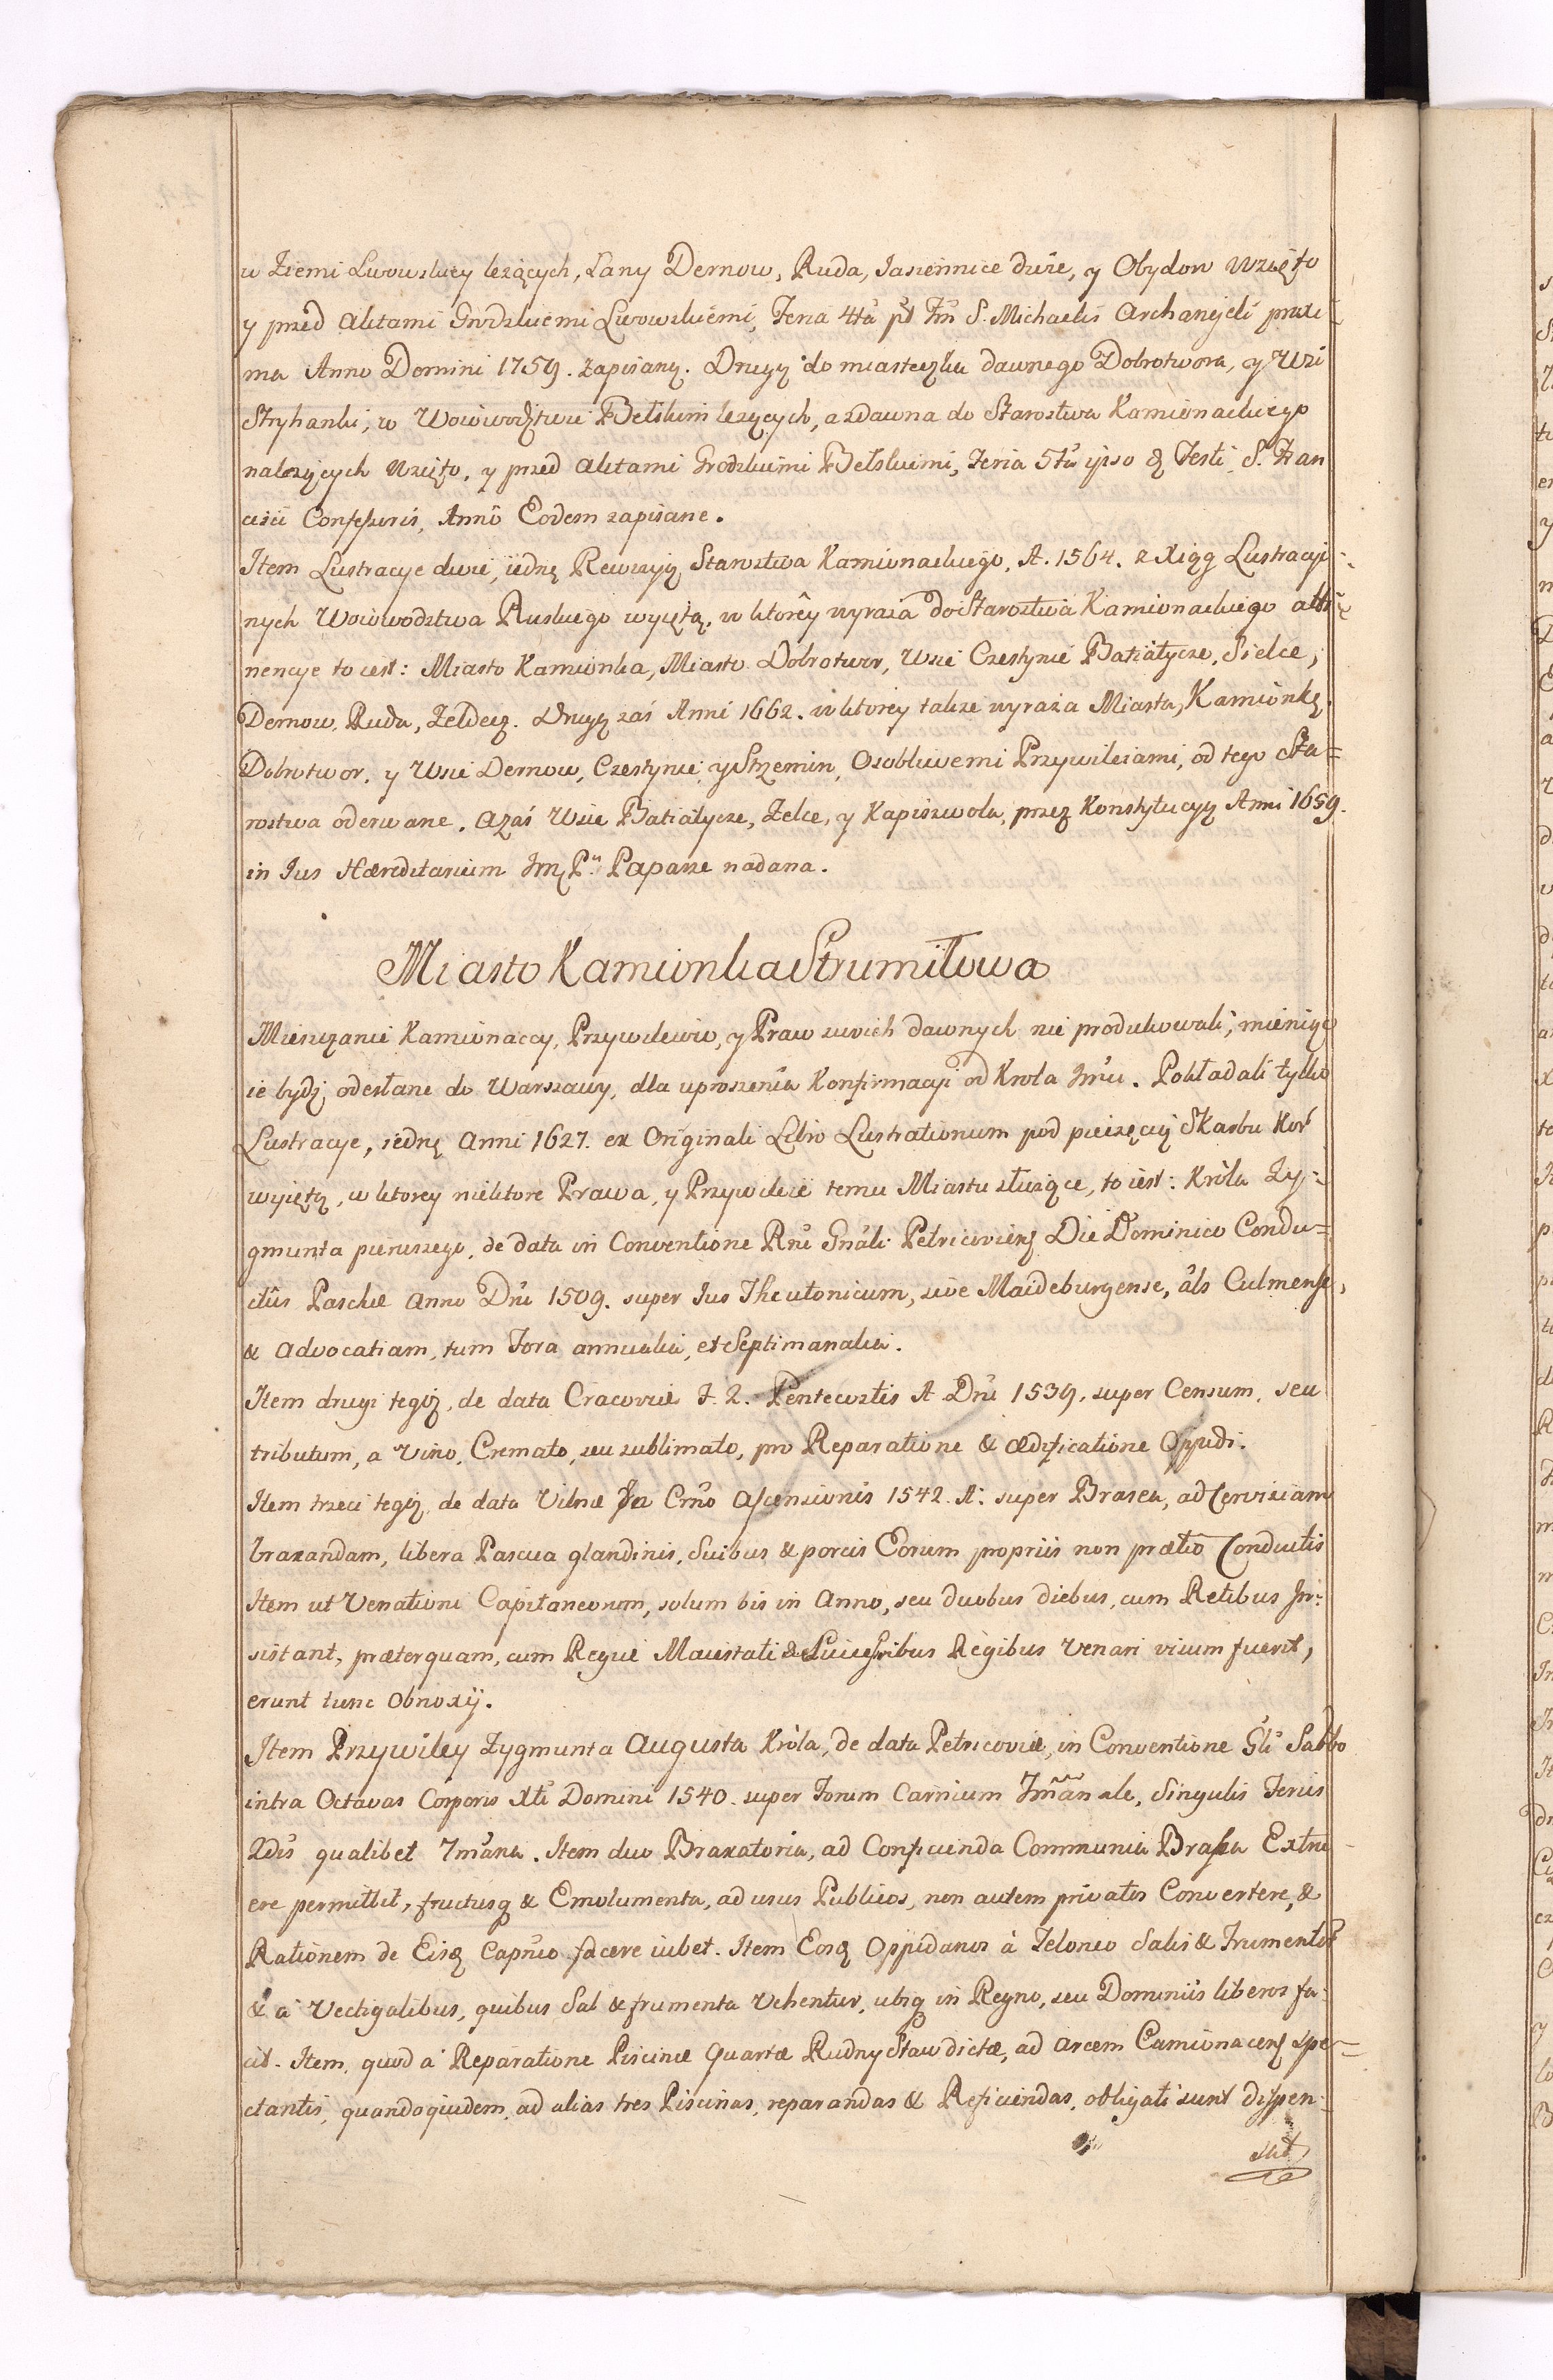 w Ziemi Lwowskiey leżących, Łany Dernow, Ruda, Jasiennice duże, y Obydow wzięto
y przed Aktami Grodzkiemi Lwowskiemi, Feria 4ta pt Fm S. Michaelis Archangeli proxi-
ma Anno Domini 1759. zapisaną. Drugą do miasteczka dawnego Dobrotwora, y Wsi
Stryhanki, w Woiwodztwie Bełskim leżących, a zdawna do Starostwa Kamionackiego
należących wzięto, y przed Aktami Grodzkiemi Bełskiemi, Feria 5ta ipso Festi S. Fran
cisii Confessoris, Anno Eodem zapisane.
Item Lustracye dwie, iedną Rewizyą Starostwa Kamionackiego, A. 1564. z Xiąg Lustracyi-
nych Woiewodztwa Ruskiego wyiętą, w ktorey wyraża do Starostwa Kamionackiego atti-
nencye to iest: Miasto Kamionka, Miasto Dobrotwor, Wsie Czestynie Batiatycze, Sielce,
Dernow, Ruda, Zeldecz. Drugą zaś Anni 1662. w ktorey także wyraża Miasta, Kamionkę.
Dobrotwor, y Wsie Dernow, Czestynie, y Strzemin, Osobliwemi Przywileiami, od tego Sta=
rostwa oderwane. A zaś Wsie Batiatycze, Zelce, y Kapiszwola, przez Konstytucyą Anni 1659.
in Ius Hæreditarium Jmć Pn Paparze nadana.
Miasto Kamionka Strumiłowa
Mieszczanie Kamionaccy, Przywileiow, y Praw swoich dawnych nie produkowali, mieniąc
ie bydź odesłane do Warszawy, dla uproszenia Konfirmacyi od Krola Jmci. Pokładali tylko
Lustracye, iedną Anni 1627. ex Originali Libro Lustrationum pod pieczęcią Skarbu Kor
wyiętą, w ktorey niektore Prawa, y Przywileie temu Miastu służące, to iest: Króla Zy-
gmunta pierwszego, de data in Conventione Rni Gnali Petricovien Die Dominico Condu=
ctus Paschæ Anno Dni 1509. super Ius Theutonicum, sive Maideburgense, als Culmense,
& Advocatiam, tum Fora annualia, et Septimanalia.
Item drugi tegoż, de data Cracoviæ F. 2. Pentecostis A Dni 1539. super Censum, seu
tributum, a Vino, Cremato, seu sublimato, pro Reparatione & ædificatione Oppidi.
Item trzeci tegoż, de data Vilnæ Crno Ascensionis 1542. A: super Brasea, ad Cervisiam
braxandam, libera Pascua glandinis, Suibus & porcis Eorum propriis non prætio Conductis
Item ut Venationi Capitaneorum, solum bis in Anno, seu duobus diebus, cum Retibus In-
sistant, præterquam, cum Regiæ Maiestati & Successoribus Regibus Venari visum fuerit,
erunt tunc Obnoxij.
Item Przywiley Zygmunta Augusta Króla, de data Petricoviæ, in Conventione Gli Sabbo
intra Octavas Corporis Xti Domini 1540. super Forum Carnium 7mãnale, Singulis Feriis
2dis qualibet 7mana. Item duo Braxatoria, ad Conficienda Communia Brasea Extru
ere permittit, fructusq & Emolumenta, ad usus Publicos, non autem privatos Convertere, &
Rationem de Eisq Capneo facere iubet. Item Eosq Oppidanos à Teloneo Salis & Frumentor
& a Vectigalibus, quibus Sal & frumenta Vehentur, ubiq in Regno, seu Dominiis liberos fa-
cit. Item, quod a Reparatione Piscinæ Quartæ Rudny Staw dictæ, ad Arcem Camionacen spe=
ctantis, quandoquidem, ad alias tres Piscinas, reparandas & Reficiendas, obligati sunt dispen-
sat